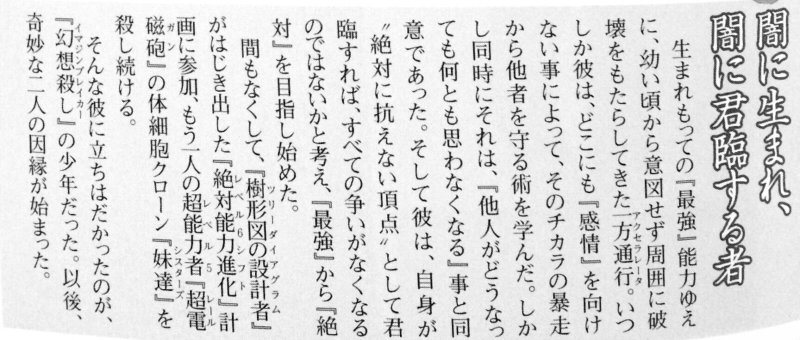 闇に生まれ、
闇に君臨する者
生まれもっての『最強』能力ゆえ
に、幼い頃から意図せず周囲に破
アクセラレータ
壊をもたらしてきた一方通行。いつ
しか彼は、どこにも『感情』を向け
ない事によって、そのチカラの暴走
から他者を守る術を学んだ。しか
し同時にそれは、『他人がどうなっ
ても何とも思わなくなる』事と同
意であった。そして彼は、自身が
〝絶対に抗えない頂点〟として君
臨すれば、すべての争いがなくなる
のではないかと考え、『最強』から『絶
対』を目指し始めた。
ツリーダイアグラム
間もなくして、『樹形図の設計者』
レベル6シフト
がはじき出した『絶対能力進化』計
レベル5 レール
画に参加、もう一人の超能力者『超電
ガン シスターズ
磁砲』の体細胞クローン『妹達』を
殺し続ける。
そんな彼に立ちはだかったのが、
イマジンブレイカー
『幻想殺し』の少年だった。以後、
奇妙な二人の因縁が始まった。